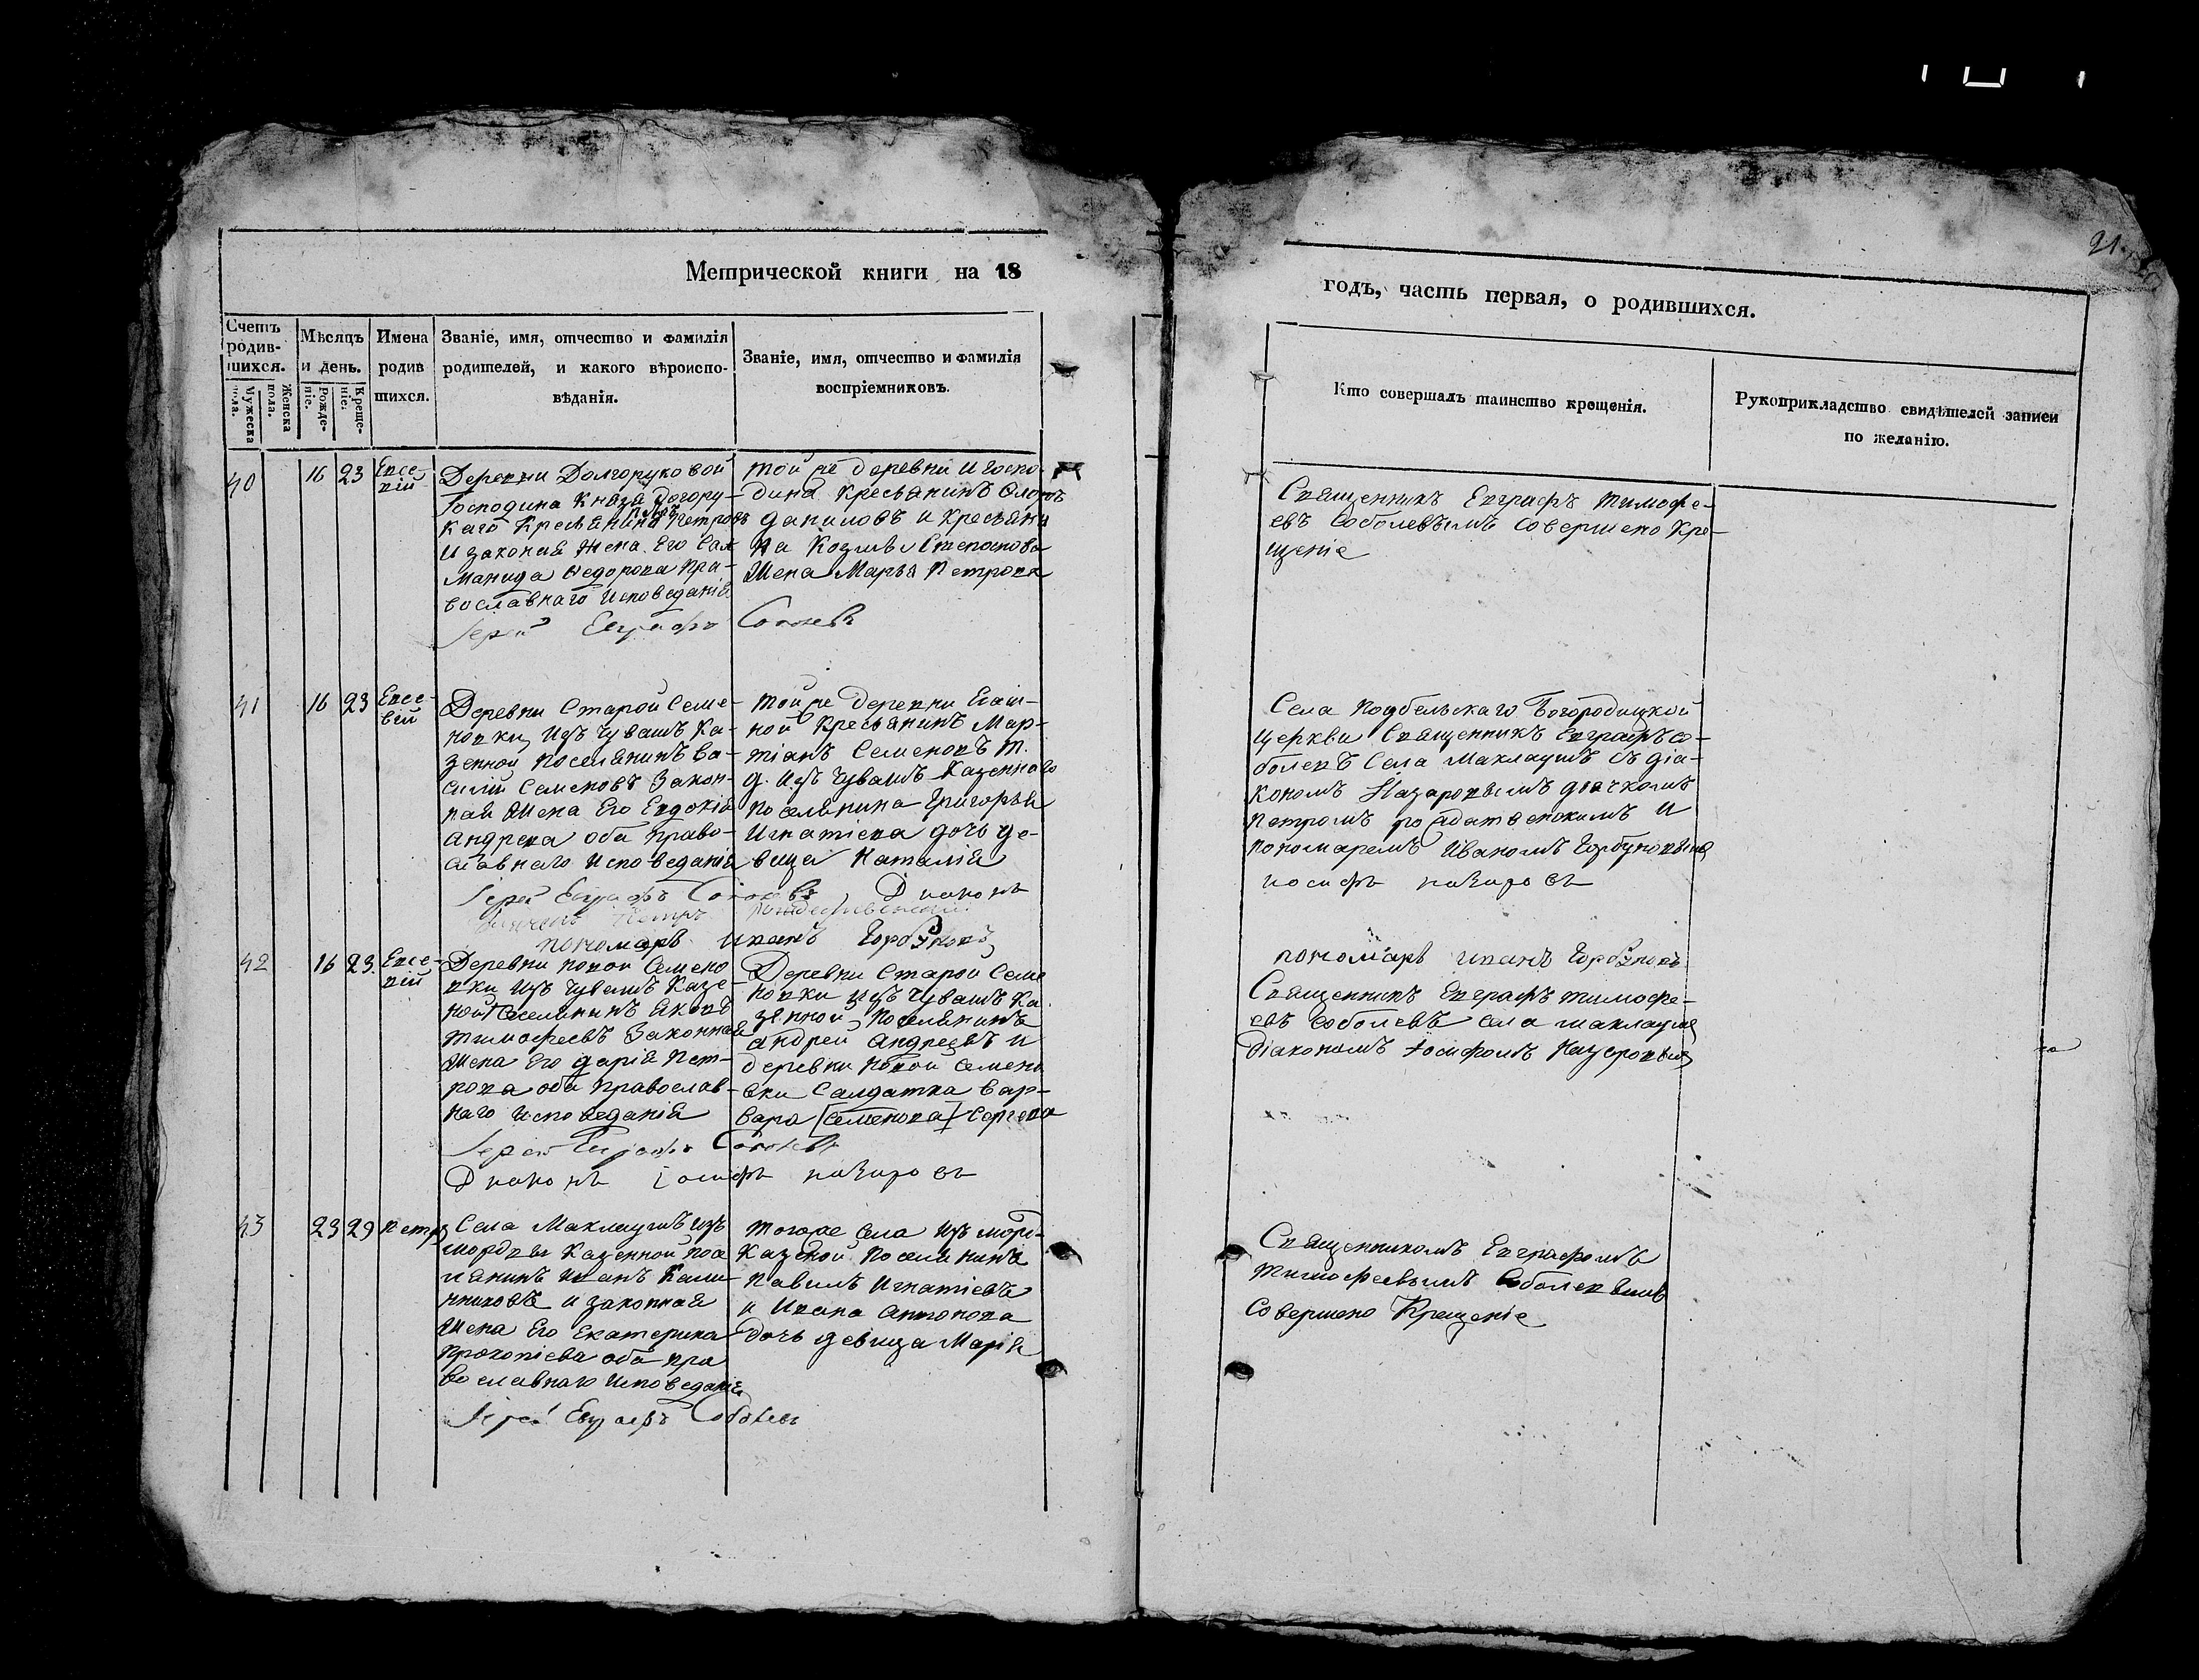 21
Метрической книги на 18
годъ, часть первая, о родившихся.
Счетъ родив-шихся.
Мужеска пола.
Женска пола.
Мѣсяцъ и день.
Рожде-ніе.
Креще-ніе.
Имена родив шихся.
Званіе, имя, отчество и фамилія
родителей, и какого вѣроиспо-
вѣданія.
Званіе, имя, отчество и фамилія
воспріемниковъ.
Кто совершалъ таинство крещенія.
Рукоприкладство свидѣтелей записи
по желанію.
40
16 23
Евсе-
вій
Деревни Долгоруковой
Господина Князя Догору-
каго Кресьянинъ Петровъ
И законая жена Его Сал
манида Федорова пра-
вославнаго Исповеданія
Іерей Евграфъ Соболевъ
той же деревни и госпо-
дина Кресьянинъ
даниловъ и Кресьяни
на Козмы Степанова
Жена Марья Петрова
Священникъ Евграфъ тимофе-
евъ Соболевымъ совершено Кре-
щеніе
41
16 23
Евсе-
вій
Деревни Старой Семе-
новки Изъ Чувашъ Ка-
зенной поселянинъ Ва-
силій Семеновъ Закон-
ная Жена Его Евдокія
Андреева оба право-
славнаго Исповеданія
Іерей Евграфъ Соболевъ Диконъ
Петръ
пономарь Иванъ Горбуновъ
той же Деревни
ной Кресьянинъ Мар-
тіанъ Семеновъ т.
д. Изъ Чувашъ Казеннаго
поселянина Григорья
Игнатіева дочь де-
вица Наталія
Села Подбельскаго Богородицкой
церкви Священникъ Евграфъ Со-
болевъ Села Маклаушъ съ діа-
кономъ Назаровымъ дьячкомъ
петромъ и
пономаремъ Иваномъ Горбуновымъ
иосифъ назаровъ
пономарь иванъ Горбуновъ
42
16 23.
Евсе-
вій
Деревни новой Семено
вки Изъ Чувашъ Казе-
ной Поселянинъ Яковъ
тимофеевъ Законная
Жена Его дарія Пет-
рова оба православ-
наго Исповеданія
Іерей Евграфъ Соболевъ
Диконъ Іосифъ назаровъ
Деревни Старой Семе
новки изъ Чувашъ Ка.
зенной поселянинъ
андрей Андреевъ и
деревни новой Семено
вки Салдатка Вар-
вара [Семенова] Сергева
Священникъ Евграфъ тимофе-
евъ Соболевъ села маклауша
Діакономъ Іосифомъ Назаровымъ
43
23 29
Петръ
Села Маклаушъ изъ
мордвы Казенной посе
лянинъ Иванъ Кали
нниковъ и законная
Жена Его Екатерина
прокопіева оба пра
вославнаго Исповеданія
Іерей Евграфъ Соболевъ
тогоже Села Изъ морд-
Казеной поселянинъ
Павилъ Игнатіевъ
и Ивана Антонова
Дочь девица Марія
Священникомъ Евграфомъ
тимофеевымъ Соболевымъ
совершено Крещеніе